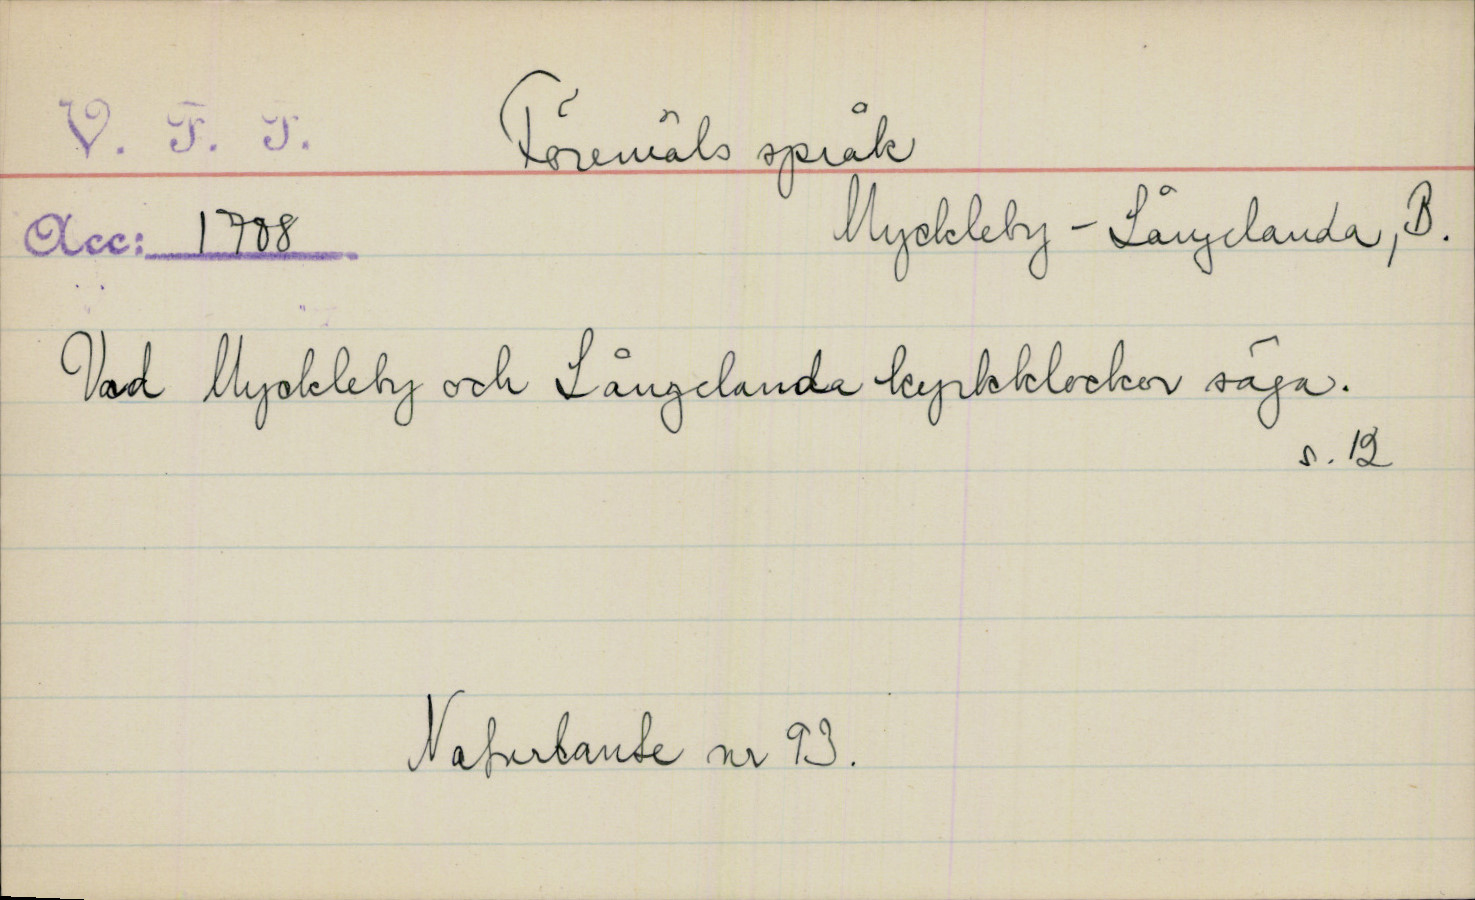 V. F. F.
Föremåls språk
Acc: 1788
Myckleby - Långelanda, B.
Vad Myckleby och Långelanda kyrkklockor säga.
s. 12
nr 93.